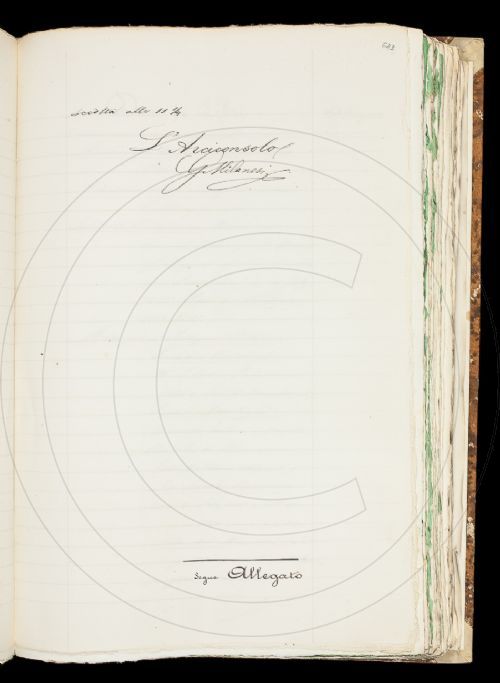 sciolta alle 11 ¾
L'Arciconsolo
G Milanesi
Segue Allegato